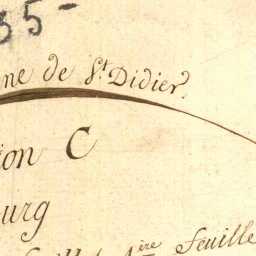 35-
ne de St Didier.
ion C
urg
1ère feuille